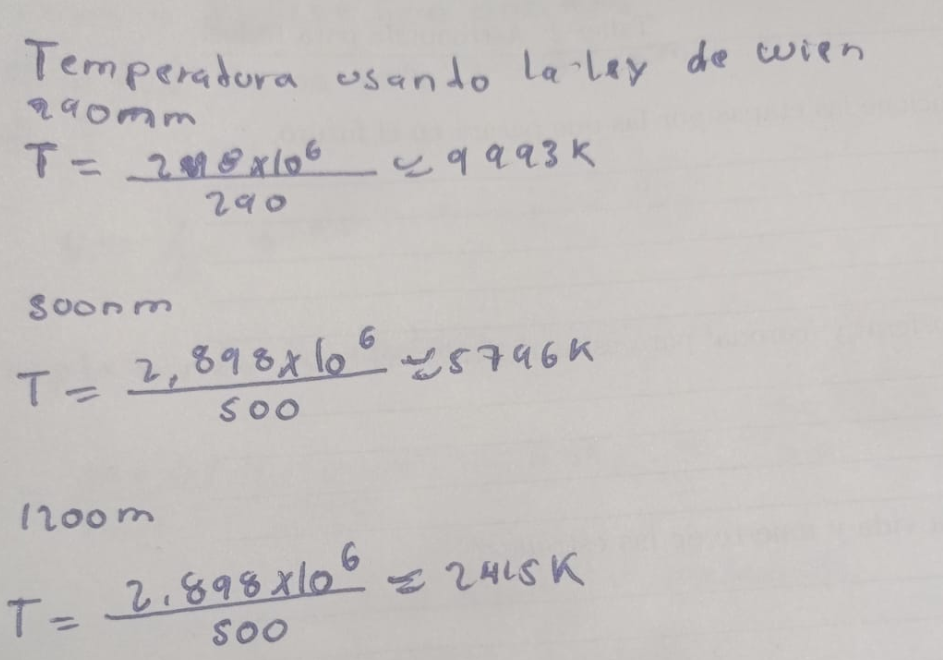 Temperadura usando la ley de wien
290mm
T = 2898x10⁶ / 290 ≈ 9993K
500nm
T = 2,898x10⁶ / 500 ≈ 5796K
1200m
T = 2.898x10⁶ / 500 ≈ 2415K